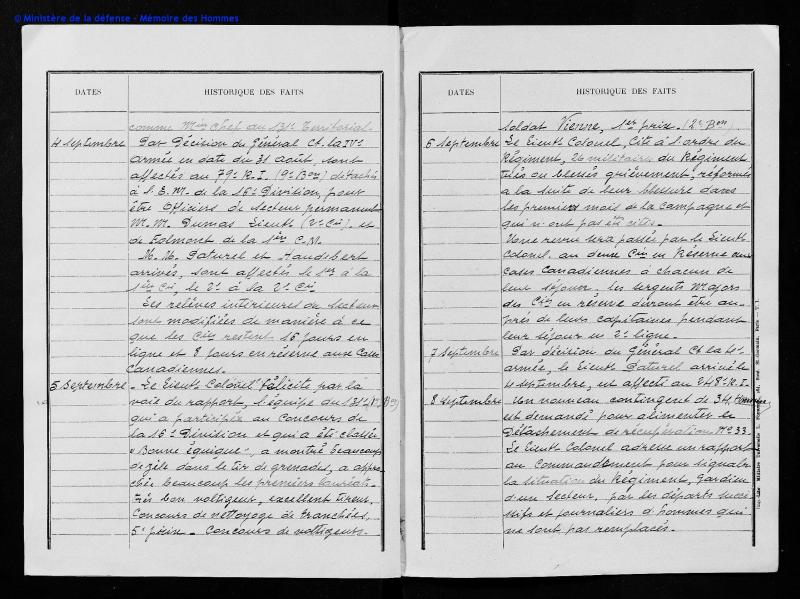 © Ministère de la défense - Mémoire des Hommes
DATES HISTORIQUE DES FAITS
comme Min Chef au 131e Territorial.
4 Septembre Par Décision du Général Ct. la IVe
Armée en date du 31 Août, sont
affectés au 79e R.I. (9e Bon) détachés
à l'E.M. de la 15e Division, pour
être Officiers de Secteur permanent
M.M. Dumas Lieutt (2e Cie) et
de Folmont de la 1ère C.M.
M.M. Paturel et Haudebert
arrivés, sont affectés le 1er à la
1ère Cie, le 2e à la 2e Cie
Les relèves intérieures du Secteur
sont modifiées de manière à ce
que les Cies restent 16 jours en
ligne et 8 jours en réserve aux Cases
Canadiennes.
5 Septembre - Le Lieutt Colonel félicite par la
voie du rapport, l'équipe du 131e Bon
qui a participé au Concours de
la 15e Division et qui a été classée
"Bonne équipe", a montré beaucoup
de zèle dans le tir de grenades, a appro-
chée beaucoup les premiers lauréats.
Très bon voltigeur, excellent tireur.
Concours de nettoyage de tranchées,
5e prix. - Concours de voltigeurs.
DATES HISTORIQUE DES FAITS
Soldat Vienne, 1er prix (2e Bon).
6 Septembre Le Lieutt Colonel, Cite à l'ordre du
Régiment, militaires du Régiment
tués ou blessés grièvement, réformés
à la suite de leur blessure dans
les premiers mois de la Campagne et
qui n'ont pas été cités.
Une revue sera passée par le Lieutt
Colonel au deux Cies en Réserve aux
Cases Canadiennes à chacun de
leur séjour, les sergents Majors
des Cies en réserve devront être au-
près de leurs capitaines pendant
leur séjour en 2e ligne.
7 Septembre Par décision du Général Ct la 4e
armée, le Lieutt Paturel arrivé le
4 septembre, est affecté au 248e R.I.
8 septembre Un nouveau contingent de 34 hommes
est demandé pour alimenter le
Détachement de récupération No 33.
Le Lieutt Colonel adresse un rapport
au Commandement pour signaler
la situation du Régiment, Gardien
d'un Secteur, par les départs succes-
sifs et journaliers d'hommes qui
ne sont pas remplacés.